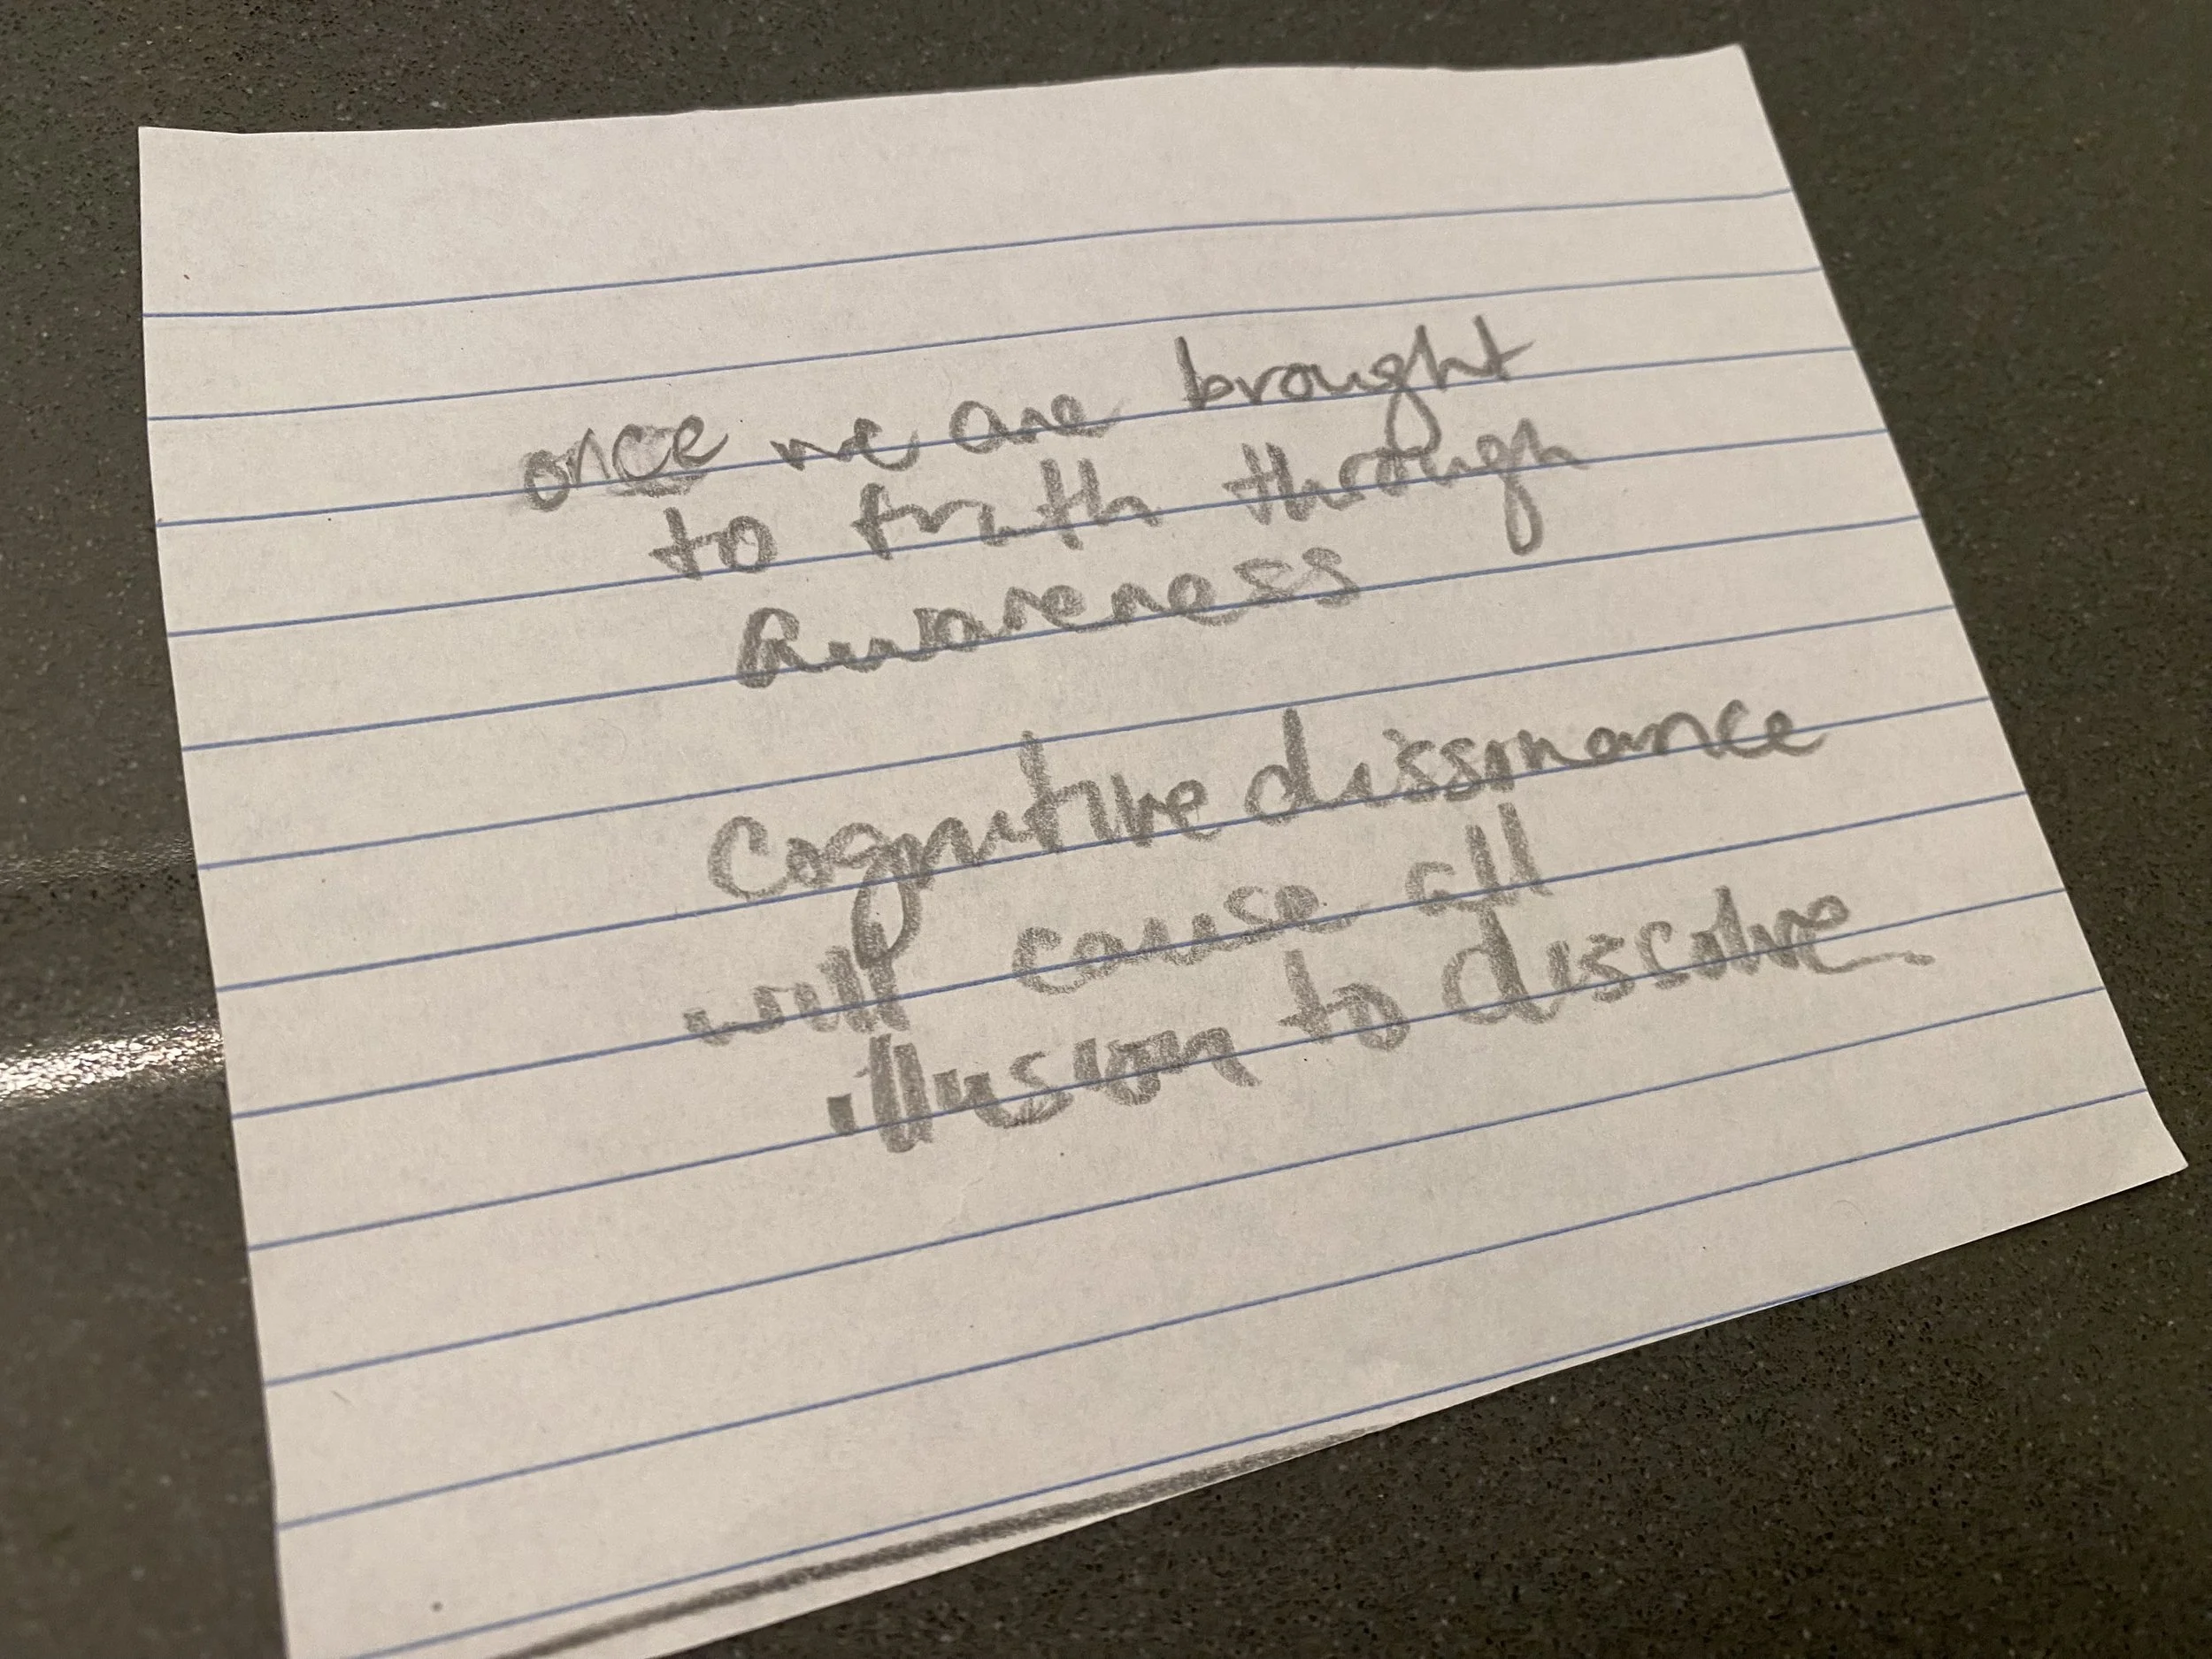 once we are brought
to truth through
Awareness
Cognitive dissonance
will cause all
illusion to dissolve.